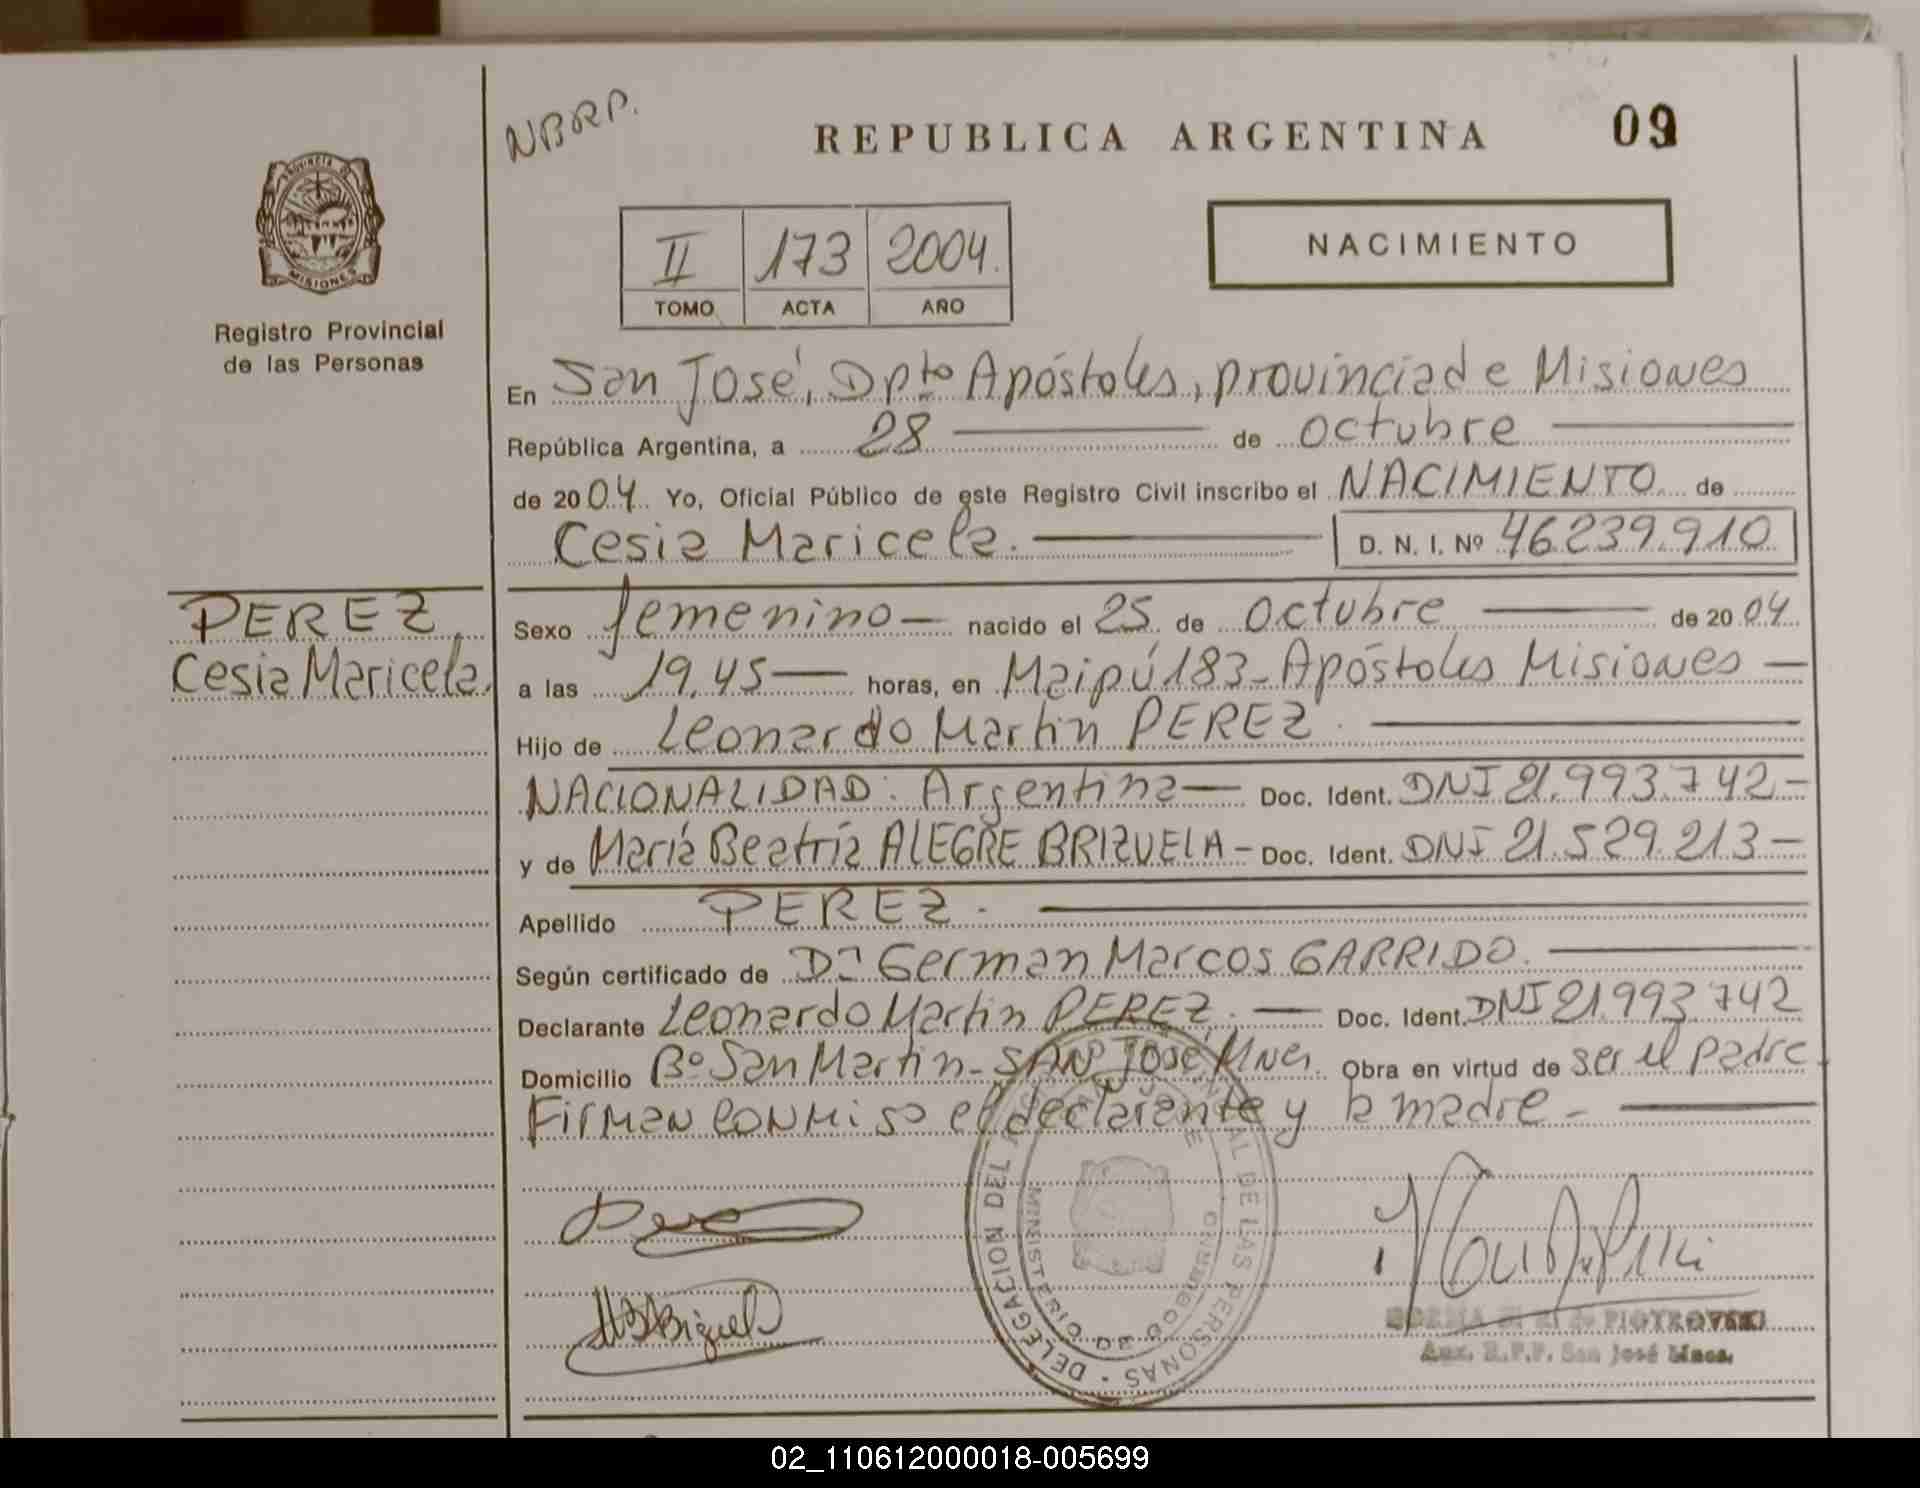 NBRP.
REPUBLICA ARGENTINA
09
PROVINCIA DE
MISIONES
Registro Provincial
de las Personas
II 173 2004.
TOMO ACTA AÑO
NACIMIENTO
En San José, Dpto Apóstoles, provincia de Misiones
República Argentina, a 28 de octubre
de 2004. Yo, Oficial Público de este Registro Civil inscribo el NACIMIENTO de
Cesia Maricela. D. N. I. Nº 46.239.910
PEREZ,
Cesia Maricela.
Sexo femenino nacido el 25 de octubre de 2004
a las 19,45 horas, en Maipú 183- Apóstoles Misiones
Hijo de Leonardo Martin PEREZ.
NACIONALIDAD: Argentina Doc. Ident. DNI 21.993.742-
y de María Beatriz ALEGRE BRIZUELA - Doc. Ident. DNI 21.529.213-
Apellido PEREZ.
Según certificado de Dr German Marcos GARRIDO.
Declarante Leonardo Martin PEREZ. Doc. Ident. DNI 21.993.742
Domicilio Bº San Martin- SAN José Mnes. Obra en virtud de ser el padre.
Firman conmigo el declarante y la madre -
DELEGACION DEL DE LAS PERSONAS
MINISTERIO DE GOBIERNO
PIOTROVSKI
Aux. R.P.P. San José Mnes.
02_110612000018-005699